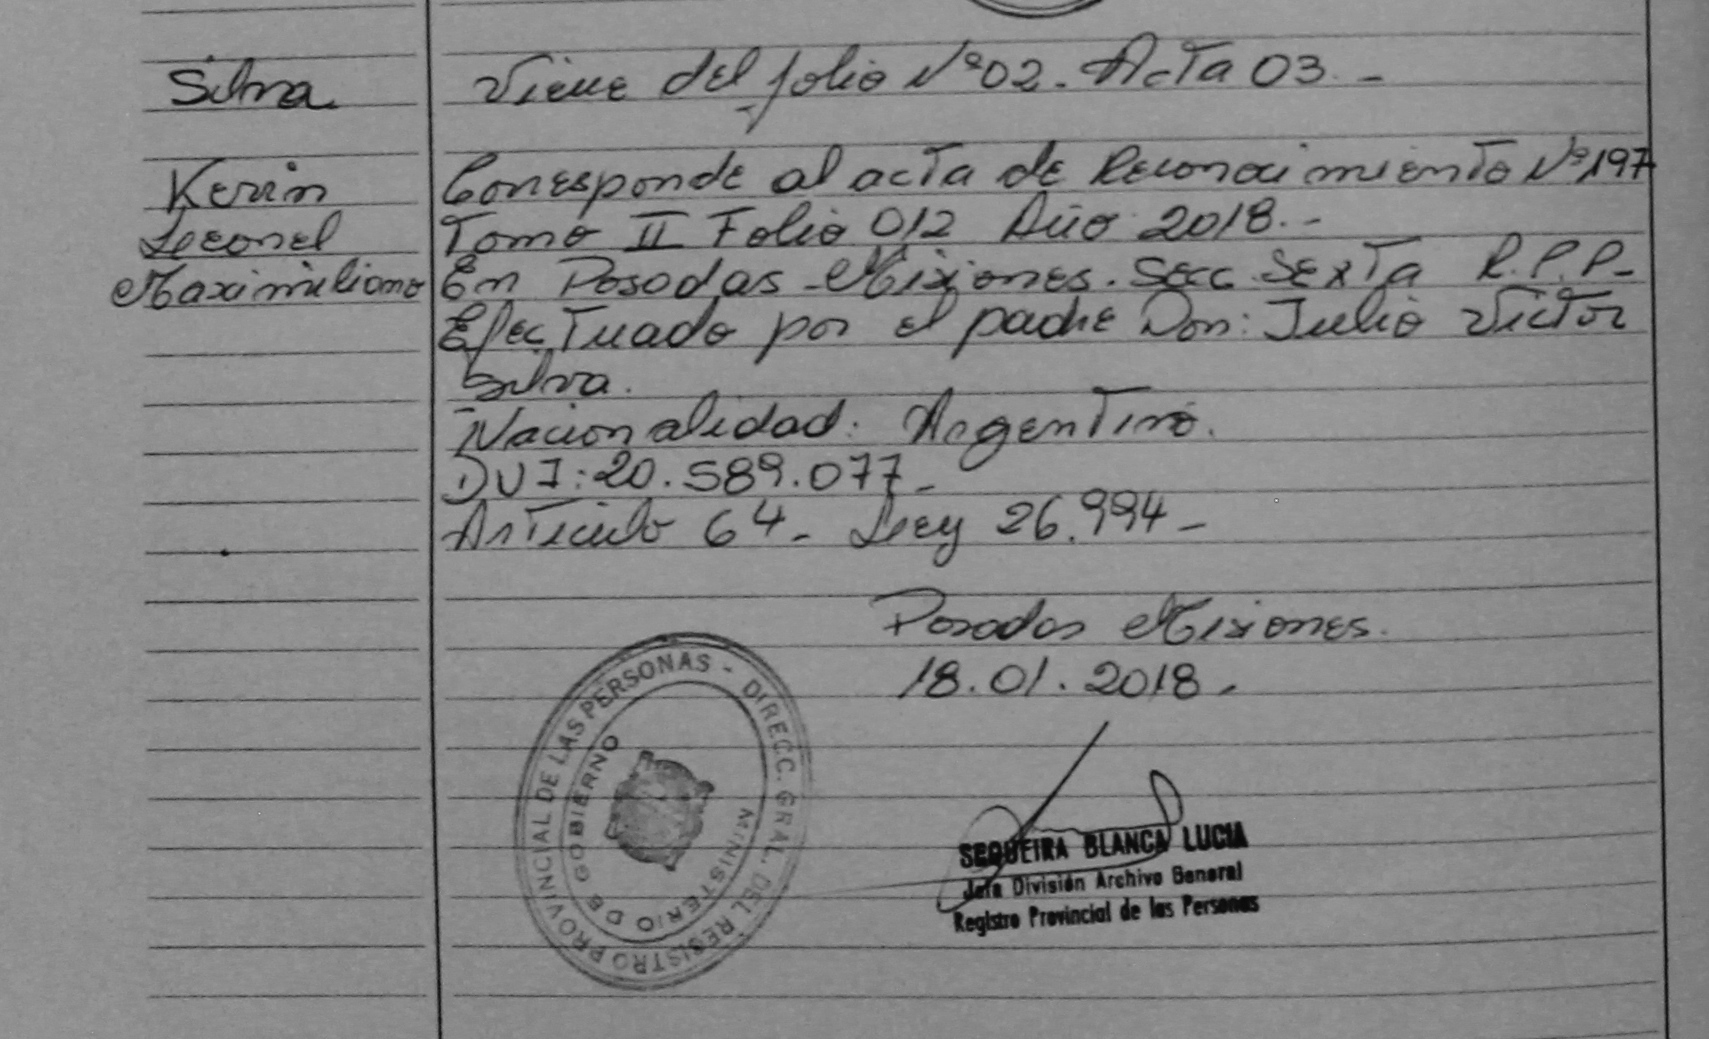 Silva
Viene del folio Nº 02. Acta 03. -
Kevin
Leeonel
Maximiliano
Corresponde al acta de Reconocimiento Nº 197
Tomo II Folio 012 Año 2018. -
En Posadas Misiones. Secc. Sexta R.P.P-
Efectuado por el padre Don: Julio Victor
Silva.
Nacionalidad: Argentino.
DUI: 20.589.077-
Articulo 64- Ley 26.994-
Posadas Misiones.
18.01.2018-
REGISTRO PROVINCIAL DE LAS PERSONAS - DIRECC. GRAL. DEL
MINISTERIO DE GOBIERNO
SEQUEIRA BLANCA LUCIA
Jefa División Archivo General
Registro Provincial de las Personas